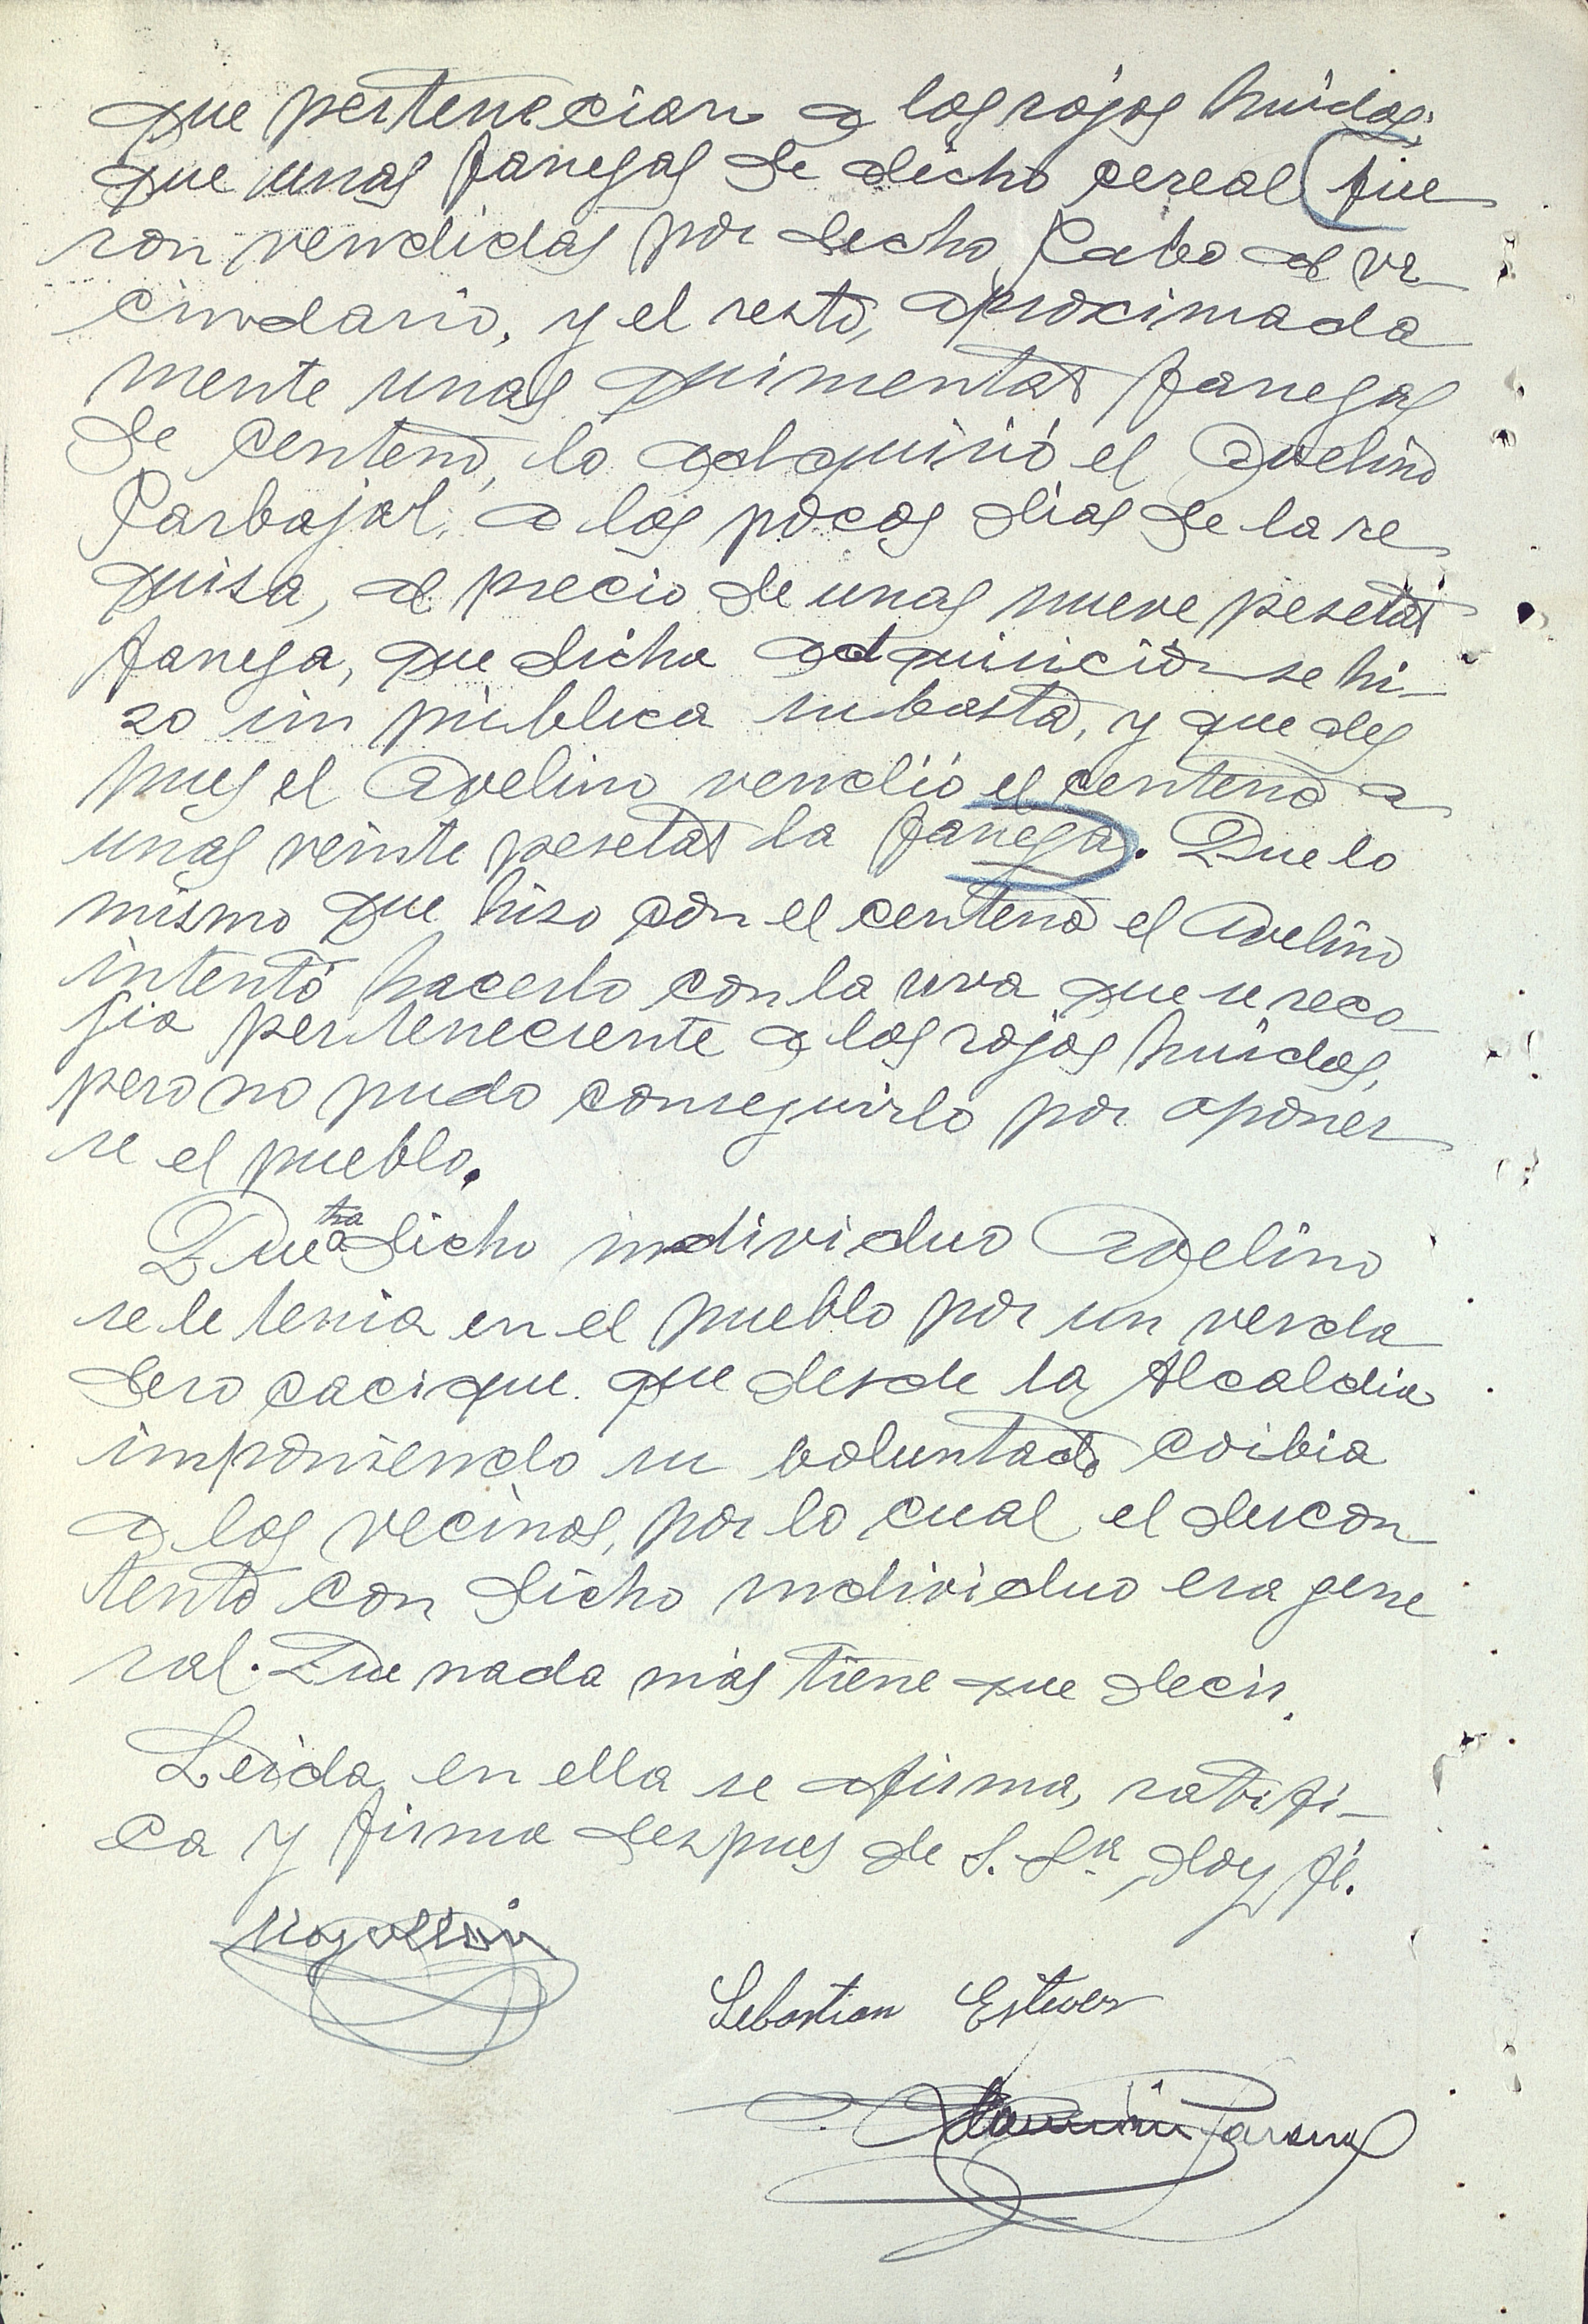 que pertenecian a los rojos huidos;
que unas fanegas de dicho cereal fue
ron vendidas por dicho Cabo al ve-
cindario, y el resto, aproximada
mente unas quinientas fanegas
de centeno, lo adquirió el Avelino
Carbajal, a los pocos dias de la re
quisa, al precio de unas nueve pesetas
fanega, que dicha adquisición se hi-
zo en pública subasta, y que des
pues el Avelino vendió el centeno a
unas veinte pesetas la fanega. Que lo
mismo que hiso con el centeno el Avelino
intentó hacerlo con la uva que se reco-
jia perteneciente a los rojos huidos,
pero no pudo conseguirlo por oponer
se el pueblo.
Que a dicho individuo Avelino
se le tenia en el pueblo por un verda
dero cacique que desde la Alcaldia
imponiendo su voluntad coibia
a los vecinos, por lo cual el descon
tento con dicho individuo era gene
ral. Que nada más tiene que decir.
Leida, en ella se afirma, ratifi-
ca y firma despues de S. Sª, doy fé.
Sebastian Estevez